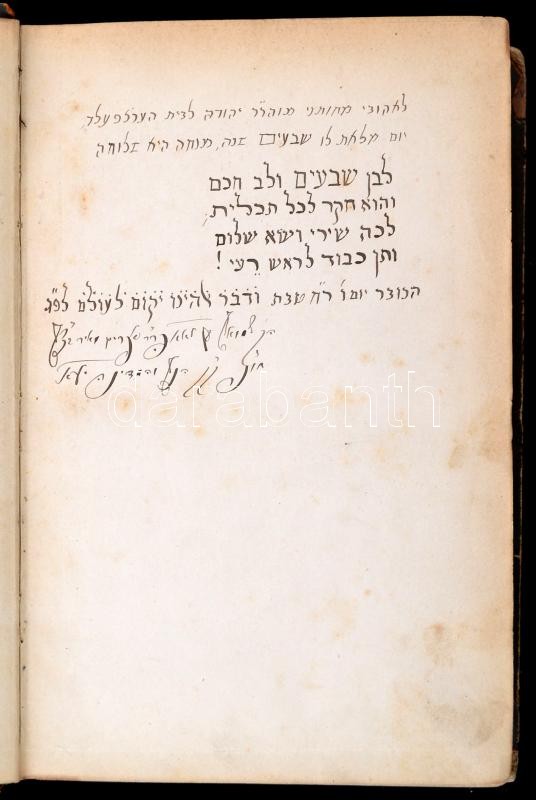 לאהובי מחותני מוהר״ר יהודה לבית הערצפעלד
יום מלאת לו שבעים שנה, מנוחה היא שלוחה
לבן שבעים ולב חכם
והוא חקר לכל תכלית
לכה שירי ושא שלום
ותן כבוד לראש רעי !
הכותב יום ו׳ ר״ח שבט ודבר אלהינו יקום לעולם לפ״ג
darabanth